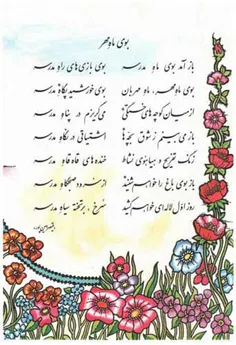 بوی ماه مهر
باز آمد بوی ماه مدرسه بوی بازی‌های راه مدرسه
بوی ماه مهر، ماه مهربان بوی خورشید پگاه مدرسه
از میان کوچه‌های خستگی می‌گریزم در پناه مدرسه
باز می‌بینم ز شوق بچه‌ها اشتیاقی در نگاه مدرسه
زنگ تفریح و هیاهوی نشاط خنده‌های قاه قاه مدرسه
باز بوی باغ را خواهم شنید از سرود صبحگاه مدرسه
روز اوّل لاله‌ای خواهم کشید سرخ، بر تخته سیاه مدرسه
قیصر امین‌پور